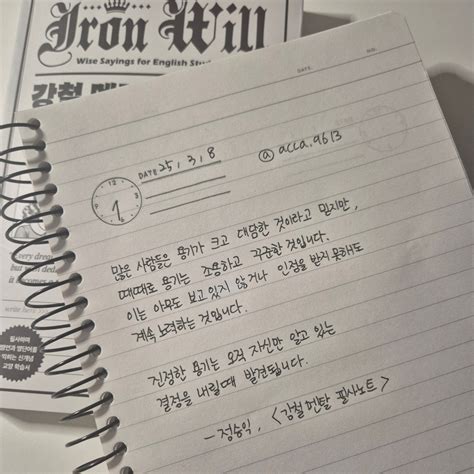 Iron Will
Wise Sayings for English
강철
DATE 25, 3, 8
@ acca.9613
DATE.
NO.
12
1
많은 사람들은 용기가 크고 대담한 것이라고 믿지만,
때때로 용기는 조용하고 꾸준한 것입니다.
이는 아무도 보고 있지 않거나 인정을 받지 못해도
계속 노력하는 것입니다.
진정한 용기는 오직 자신만이 알고 있는
결정을 내릴때 발견됩니다.
- 정승익, <강철멘탈 필사노트>
very
필사하며
익히는 신개념
교양 학습서